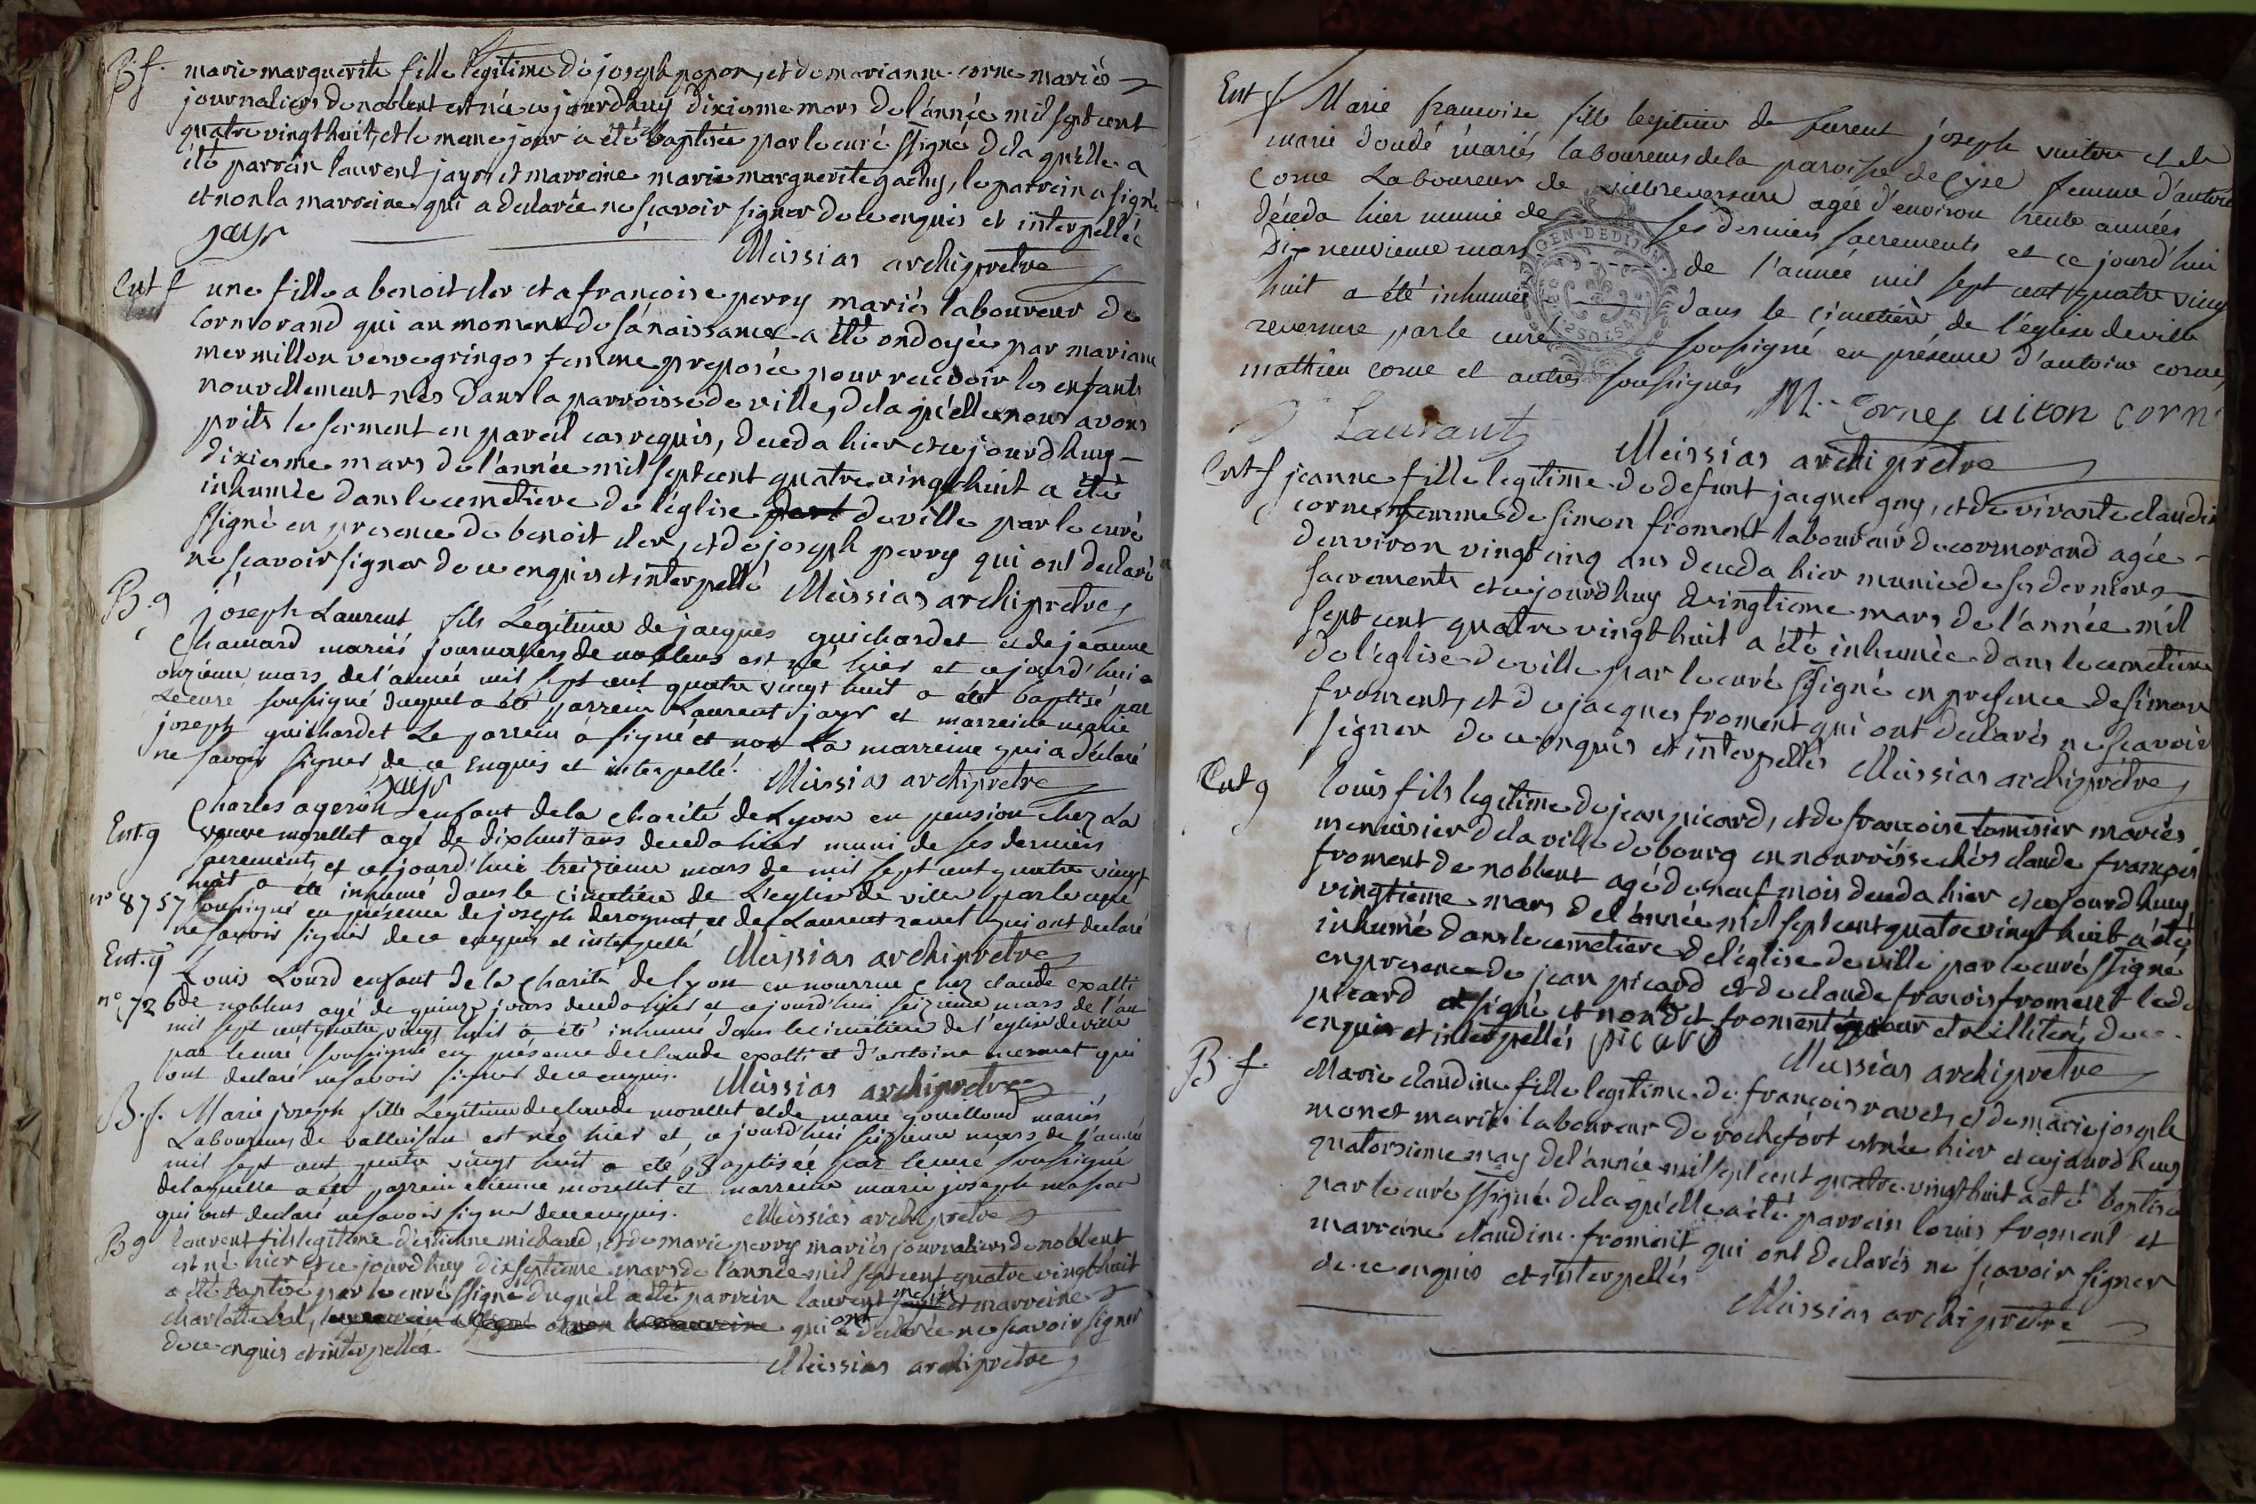 B.f. marie marguerite fille legitime de joseph popon, et de marianne corne mariés
journaliers de noblent est née ce jourdhuy dixiesme mars de l'année mil sept cent
quatre vingt huit, et le meme jour a été baptisée par le curé ssigné de la quelle a
été parrain laurent jayr et marraine marie marguerite gachy, le parrein a signé
et non la marraine qui a declarée ne sçavoir signer de ce enquis et interpellée
jayr Meissias archipretre
Ent f une fille a benoit cler et a françoise perry mariés laboureur de
Cormorand qui au moment de sa naissance a été ondoyée par mariane
mermillon veuve gringos femme preposée pour recevoir les enfants
nouvellement nés dans la parroisse de ville, de la qu'elle nous avons
prits le serment en pareil cas requis, deceda hier et ce jourdhuy
dixiesme mars de l'année mil sept cent quatre vingt huit a été
inhumée dans le cemetiere de l'église de ville par le curé
ssigné en presence de benoit cler, et de joseph perry qui ont declaré
ne scavoir signer de ce enquis et interpellé Meissias archipretre
B.g joseph Laurent fils Légitime de jacques guichardet et de jeanne
Chanard mariés journaliers de noblens est né hier et ce jourd'hui
onzieme mars de l'année mil sept cent quatre vingt huit a été baptisé par
le curé soussigné duquel a été parrein Laurent jayr et marreine marie
joseph guichardet Le parrein a signé et non La marreine qui a déclaré
ne savoir signer de ce enquis et interpellé. Meissias archipretre
jayr
Ent.g Charles agerón enfant de la charité de Lyon en pension chez La
veuve morellet agé de dixhuit ans deceda hier muni de ses derniers
sacrements et ce jourd'hui treizieme mars de mil sept cent quatre vingt
huit a été inhumé dans le cimetiére de L'eglise de ville par le curé
n° 8757 soussigné en présence de joseph derognat et de Laurent ravet qui ont declaré
ne savoir signer de ce enquis et interpellé Meissias archipretre
Ent.g Louis Lourd enfant de la charité de lyon en nourrice chez claude expalti
n° 726 de noblens agé de quinze jours deceda hier et ce jourd'hui seizieme mars de l'an
mil sept cent quatre vingt huit a été inhumé dans le cimetiere de l'eglise de ville
par le curé soussigné en présence de claude expalti et d'antoine mermet qui
ont declaré ne savoir signer de ce enquis. Meissias archipretre
B.f. Marie joseph fille Legitime de claude morellet et de marie gouilloud mariés
Laboureurs de valleisan est née hier et ce jourd'hui seizieme mars de l'année
mil sept cent quatre vingt huit a été Baptisée par le curé soussigné
de laquelle a été parrein etienne morellet et marreine marie joseph
qui ont declaré ne savoir signer de ce enquis. Meissias archipretre
B g laurent fils legitime d'estienne michaud, et de marie perry mariés journaliers de noblent
est né hier et ce jourdhuy dixseptieme mars de l'année mil sept cent quatre vingt huit
a été baptisé par le curé ssigné duquel a été parrein laurent et marreine
charlotte qui ont declarée ne scavoir signer
de ce enquis et interpellés Meissias archipretre
Ent f. Marie francoise fille legitime de feu joseph vuiton et de
marie doudé mariés laboureurs de la paroisse de Cyse femme d'antoine
Corne Laboureur de villereversure agée d'environ trente années
déceda hier munie de ses derniers sacrements et ce jourd'hui
Dix neuvieme mars de l'année mil sept cent quatre vingt
huit a été inhumée dans le cimetière de l'église de ville
reversure par le curé soussigné en présence d'antoine corne,
mathieu corne et autres soussignés M. Corne, uiton Corn
Laurant Meissias archipretre
Ent f jeanne fille legitime de defunt jacque guy, et de vivante claudi
corne, femme de simon froment laboureur de cormorand agée
d'environ vingt cinq ans deceda hier munie de ses derniers
sacrements et ce jourdhuy vingtieme mars de l'année mil
sept cent quatre vingt huit a été inhumée dans le cemetiere
de l'église de ville par le curé ssigné en presence de simon
froment, et de jacques froment qui ont declarés ne scavoir
signer de ce enquis et interpellés Meissias archiprétre
Ent g louis fils legitime de jean picard, et de francoise tomisier mariés
menuisier de la ville de bourg en nourrisse chés claude françois
froment de noblent agé de neuf mois deceda hier et ce jourdhuy
vingtieme mars de l'année mil sept cent quatre vingt huit a été
inhumé dans le cemetiere de l'église de ville par le curé ssigné
en presence de jean picard et de claude francois froment led
picard a signé et non led froment illiteré, de ce
enquis et interpellés picard Meissias archipretre
B. f. Marie claudine fille legitime de françois ravet, et de marie joseph
monet mariés laboureur de rochefort est née hier et ce jourdhuy
quatorsieme may de l'année mil sept cent quatre vingt huit a été baptisé
par le curé ssigné de la qu'elle a été parrein louis froment et
marreine claudine froment qui ont declarés ne scavoir signer
de ce enquis et interpellés Meissias archiprétre